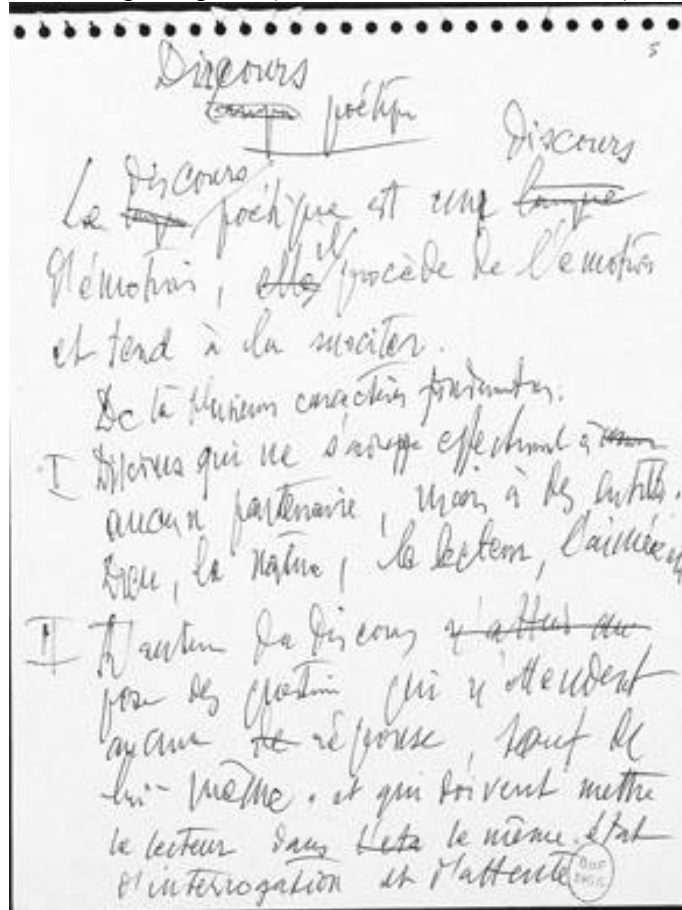 5
Discours
langue poétique
Discours
Discours
Le langue poétique est une langue
d'émotion, elle il procède de l'émotion
et tend à la susciter.
De là plusieurs caractères fondamentaux.
I Discours qui ne s'adresse effectivement à
aucun partenaire, mais à des entités.
Dieu, la nature, le lecteur, l'aimée
II L'auteur du discours n'attend au
pose des questions qui n'attendent
aucune de réponse, sauf de
lui-même. et qui doivent mettre
le lecteur dans l'eta le même état
d'interrogation et d'attente
BnF
MSS